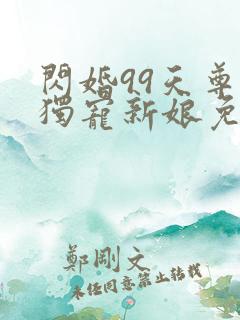 閃婚99天尊
獨寵新娘免
鄭剛文
未任同意禁止轉載